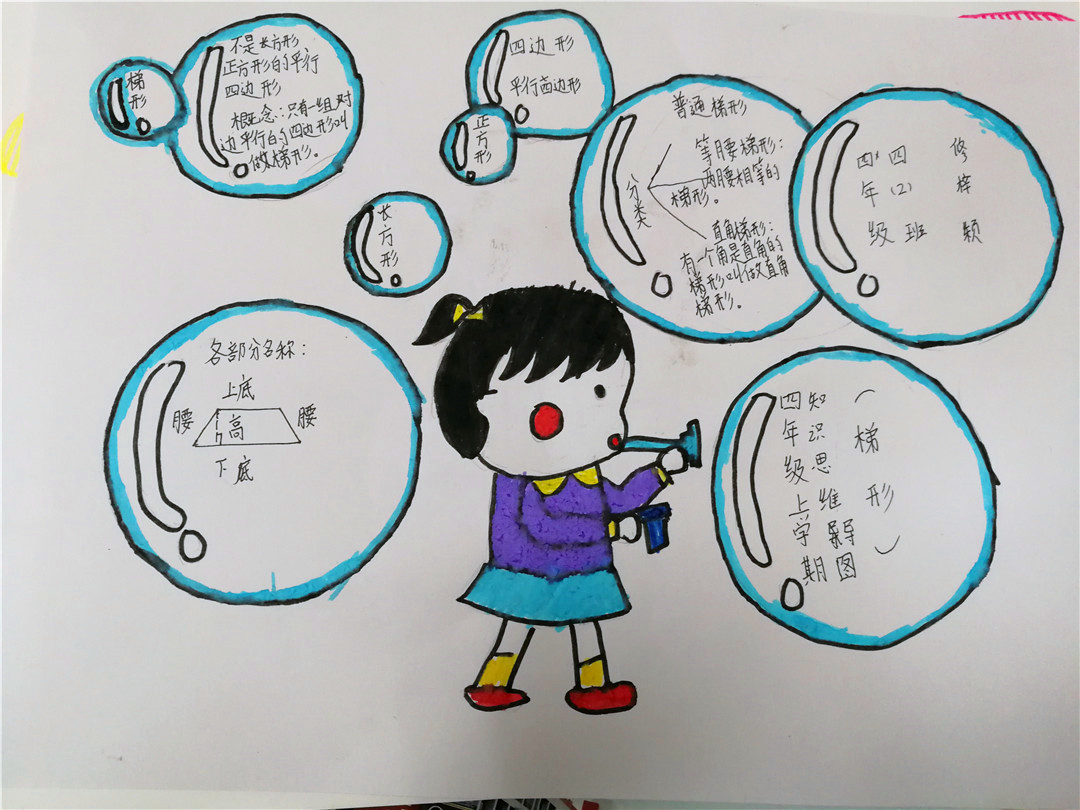 梯形
不是长方形
正方形的平行
四边形
概念:只有一组对
边平行的四边形叫
做梯形。
四边形
平行四边形
正方形
长方形
分类
普通梯形
等腰梯形:
两腰相等的
梯形。
直角梯形:
有一个角是直角的
梯形叫做直角
梯形。
四年级
四(2)班
修梓颖
各部分名称:
上底
腰 高 腰
下底
四年级上学期
知识思维导图
(梯形)